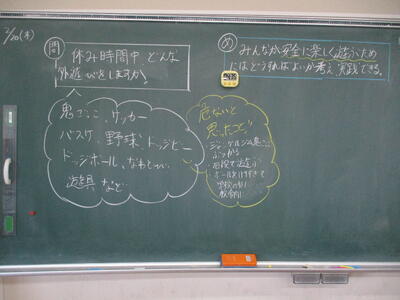 2/20(木)
問 休み時間中、どんな
外遊びをしますか。
め みんなが安全に楽しく遊ぶため
にはどうすればよいか考え、実践できる。
鬼ごっこ、サッカー
バスケ、野球、ドッジビー
ドッジボール、なわとび、
遊具 など
危ないと
思ったこと
・ジャングルジム
ぶつかる
・階段で遊ぶ
・ボール